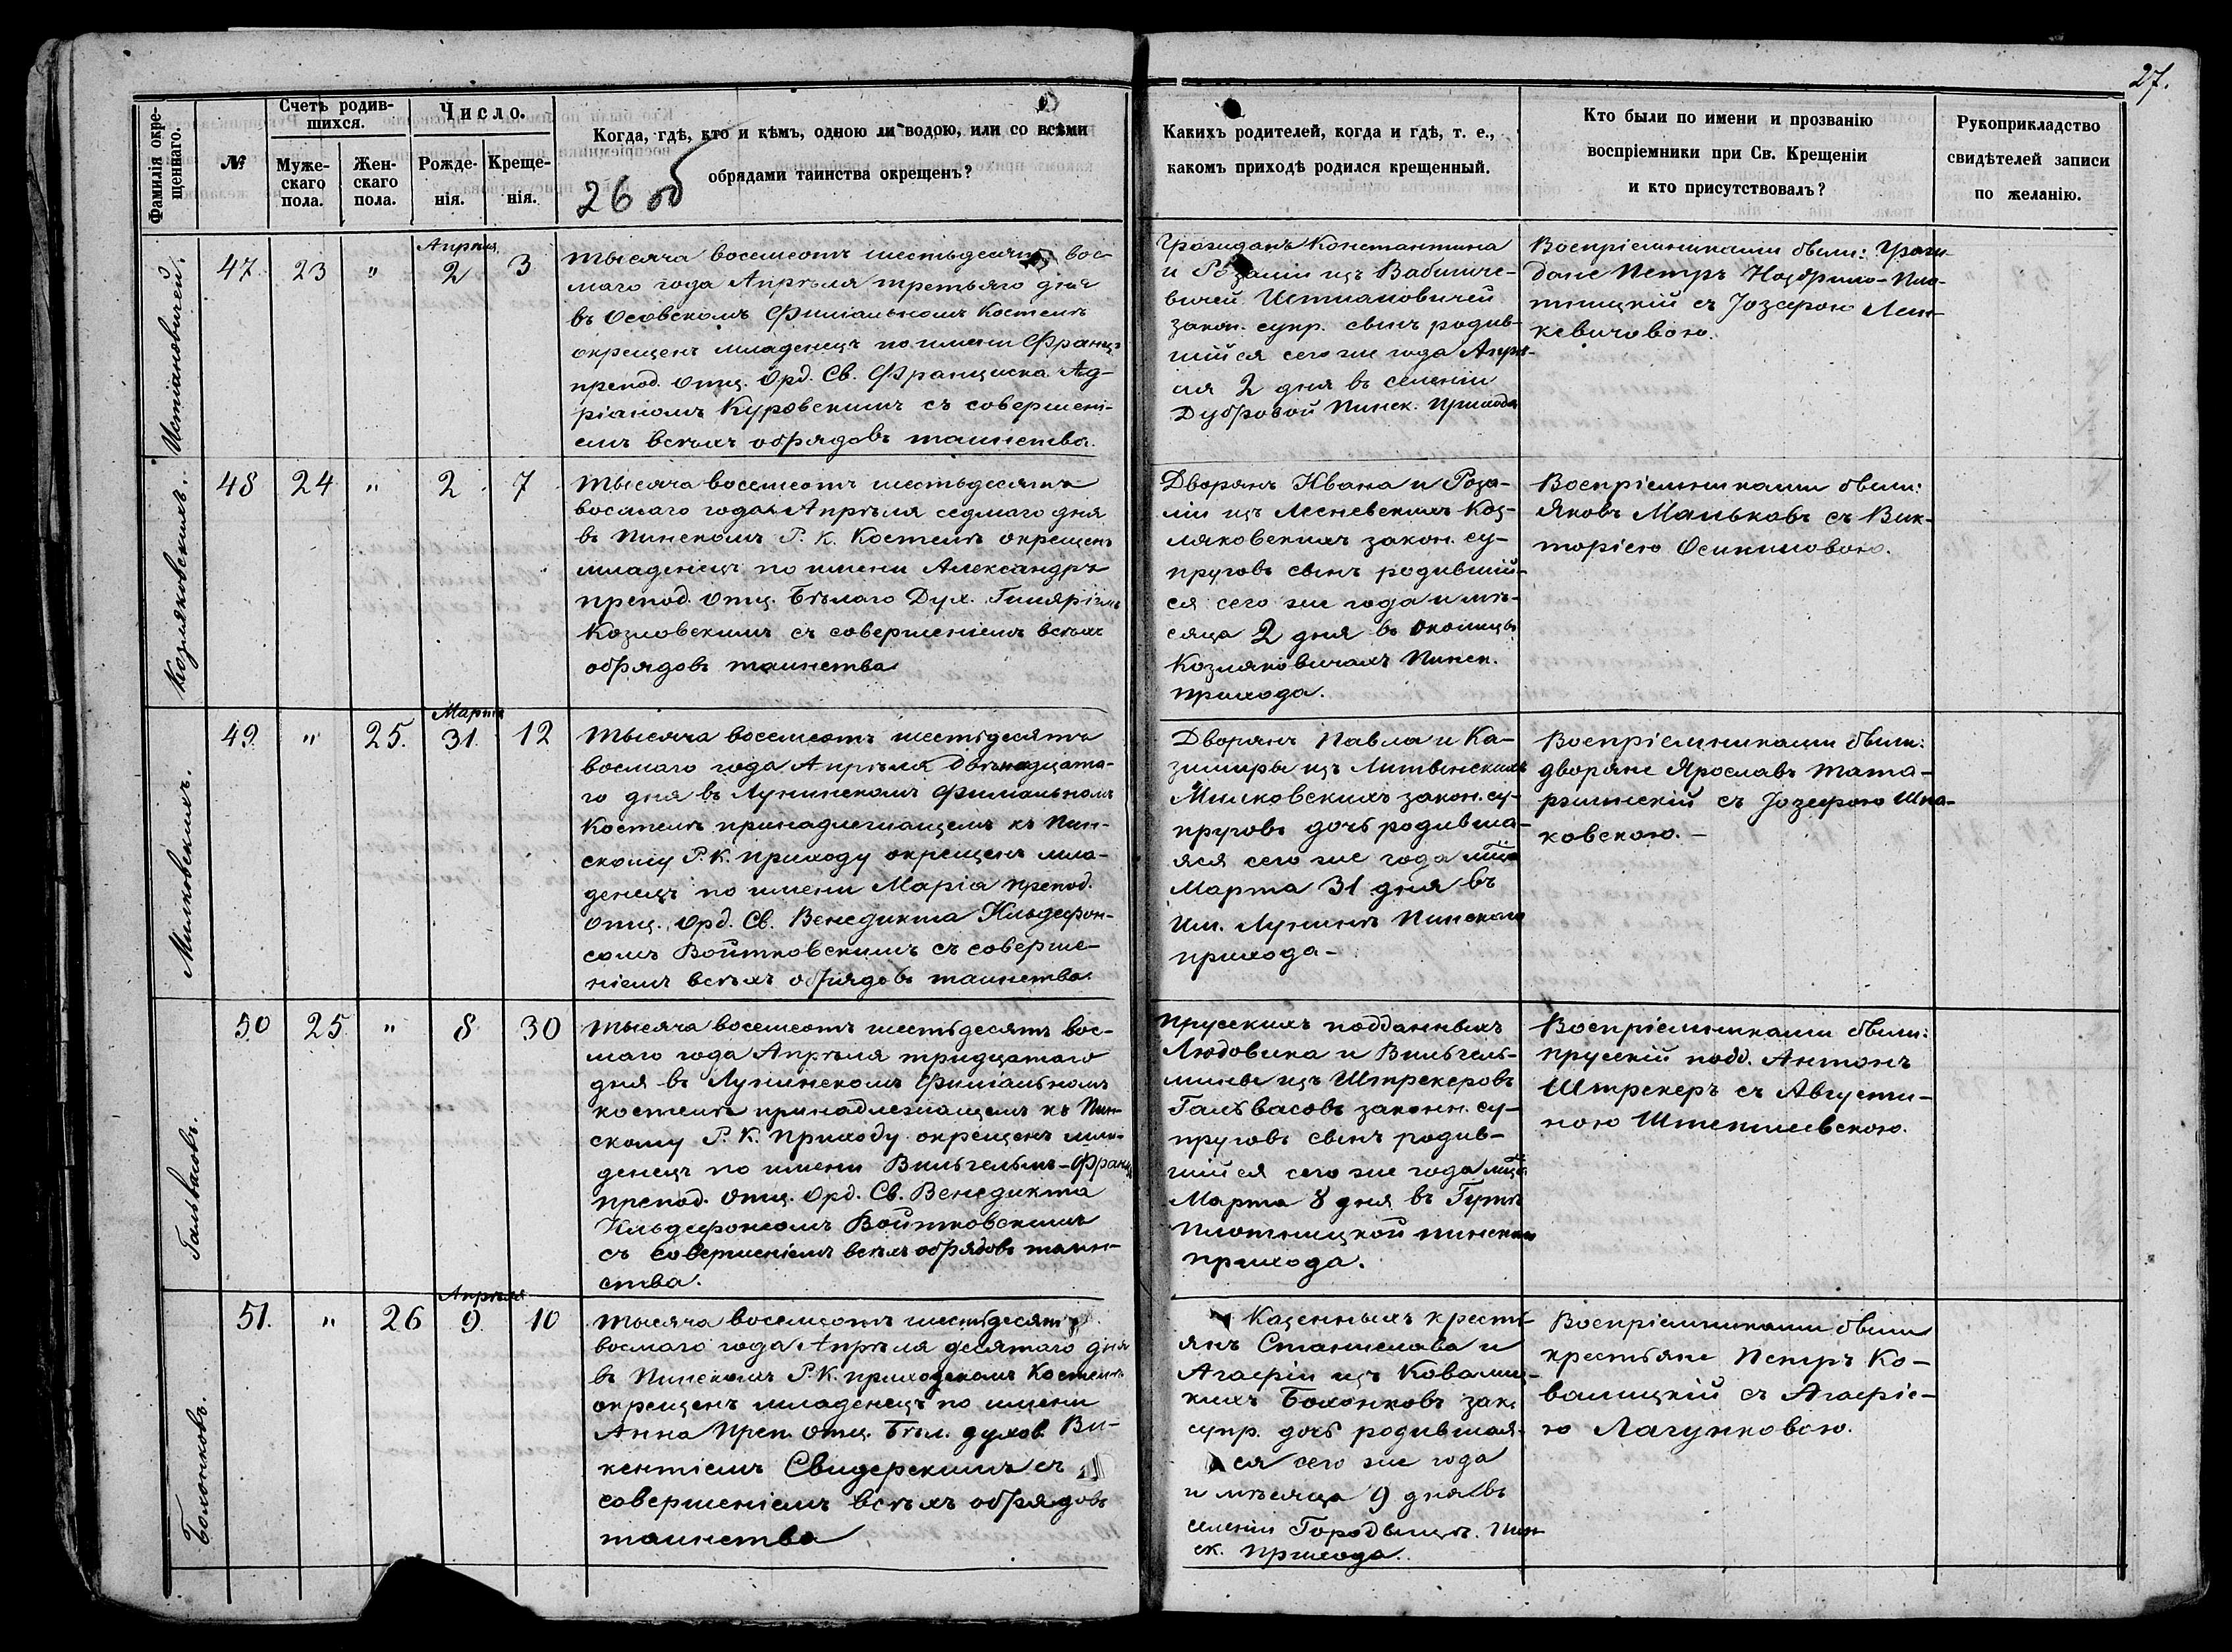 27.
Фамилія окре-
щеннаго.
№
Счетъ родив-
шихся.
Муже-
скаго
пола.
Жен-
скаго
пола.
Число.
Рожде-
нія.
Креще-
нія.
Когда, гдѣ, кто и кѣмъ, одною ли водою, или со всѣми
обрядами таинства окрещенъ?
26 об
Какихъ родителей, когда и гдѣ, т. е.,
какомъ приходѣ родился крещенный.
Кто были по имени и прозванію
воспріемники при Св. Крещеніи
и кто присутствовалъ?
Рукоприкладство
свидѣтелей записи
по желанію.
47
23
"
Апрѣля
2
3
Тысяча восемсотъ шестьдесятъ вос-
маго года Апрѣля третьяго дня
въ Осовскомъ Филіальномъ Костелѣ
окрещенъ младенецъ по имени Францъ
препод. Отц. Орд. Св. Франциска Ад-
ріаномъ Куровскимъ съ совершені-
емъ всѣхъ обрядовъ таинства.
Гражданъ Константина
и Розаліи изъ Бабиче-
вичей
закон. супр. сынъ родив-
шійся сего же года Апрѣ-
ля 2 дня въ селеніи
Дубровой Пинск. Прихода
Воспріемниками были: Граж-
дане Петръ
съ Іозефою
48
24
"
2
7
Козляковскихъ.
Тысяча восемсотъ шестьдесятъ
восмаго года Апрѣля седмаго дня
въ Пинскомъ Р. К. Костелѣ окрещенъ
младенецъ по имени Александръ
препод. Отц. Бѣлаго Дух. Гиляріемъ
Козловскимъ съ совершеніемъ всѣхъ
обрядовъ таинства
Дворянъ Ивана и Роза-
ліи изъ Лесневскихъ Коз-
ляковскихъ закон. су-
пруговъ сынъ родившій-
ся сего же года и мѣ-
сяца 2 дня въ околицѣ
Козляковичахъ Пинск.
прихода.
Воспріемниками были:
Яковъ Маньковъ съ Вик-
торіею Осипиловою.
49.
"
25.
Марта
31.
12
Милковскихъ.
Тысяча восемсотъ шестьдесятъ
восмаго года Апрѣля двѣнадцата-
го дня въ Лунинскомъ Филіальномъ
Костелѣ принадлежащемъ къ Пин-
скому Р. К. Приходу окрещенъ мла-
денецъ по имени Марія препод.
Отц. Орд. Св. Венедикта Ильдефон-
сомъ Войтковскимъ съ соверше-
ніемъ всѣхъ обрядовъ таинства.
Дворянъ Павла и Ка-
зиміры изъ Литвинскихъ
Милковскихъ закон. су-
пруговъ дочь родивша-
яся сего же года мца
Марта 31 дня въ
Им. Лунинѣ Пинскаго
прихода -
Воспріемниками были:
дворяне Ярославъ Тата-
ржинскій съ Іозефою Шпа-
ковскою. -
50
25
"
8
30
Гальвасовъ.
Тысяча восемсотъ шестьдесятъ вос-
маго года Апрѣля тридцатаго
дня въ Лунинскомъ Филіальномъ
костелѣ принадлежащемъ къ Пин-
скому Р. К. Приходу окрещенъ мла-
денецъ по имени Вильгельмъ-Францъ
препод. Отц. Орд. Св. Венедикта
Ильдефонсомъ Войтковскимъ
съ совершеніемъ всѣхъ обрядовъ таин-
ства.
Прусскихъ подданныхъ
Людовика и Вильгель-
мины изъ Штрекеровъ
Гальвасовъ законн. су-
пруговъ сынъ родив-
шійся сего же года мца
Марта 8 дня въ Гутѣ
Плотницкой пинскаго
прихода.
Воспріемниками были:
прусскій подд. Антонъ
Штрекеръ съ Августи-
ною
51.
"
26
Апрѣля
9.
10
Болонковъ.
Тысяча восемсотъ шестьдесятъ
восмаго года Апрѣля десятаго дня
въ Пинскомъ Р. К. приходскомъ Костелѣ
окрещенъ младенецъ по имени
Анна Преп. Отц. Бѣл. духов. Ви-
кентіемъ Свидерскимъ съ
совершеніемъ всѣхъ обрядовъ
таинства
Казенныхъ кресть-
янъ Станислава и
Агафіи изъ Ковалиц-
кихъ Болонковъ зак.
супр. дочь родившая-
ся сего же года
и мѣсяца 9 дня въ
селеніи Городыщѣ. Пин-
ск. Прихода.
Воспріемниками были
крестьяне Петръ Ко-
валицкій съ Агафіе-
ю Лагунковою.